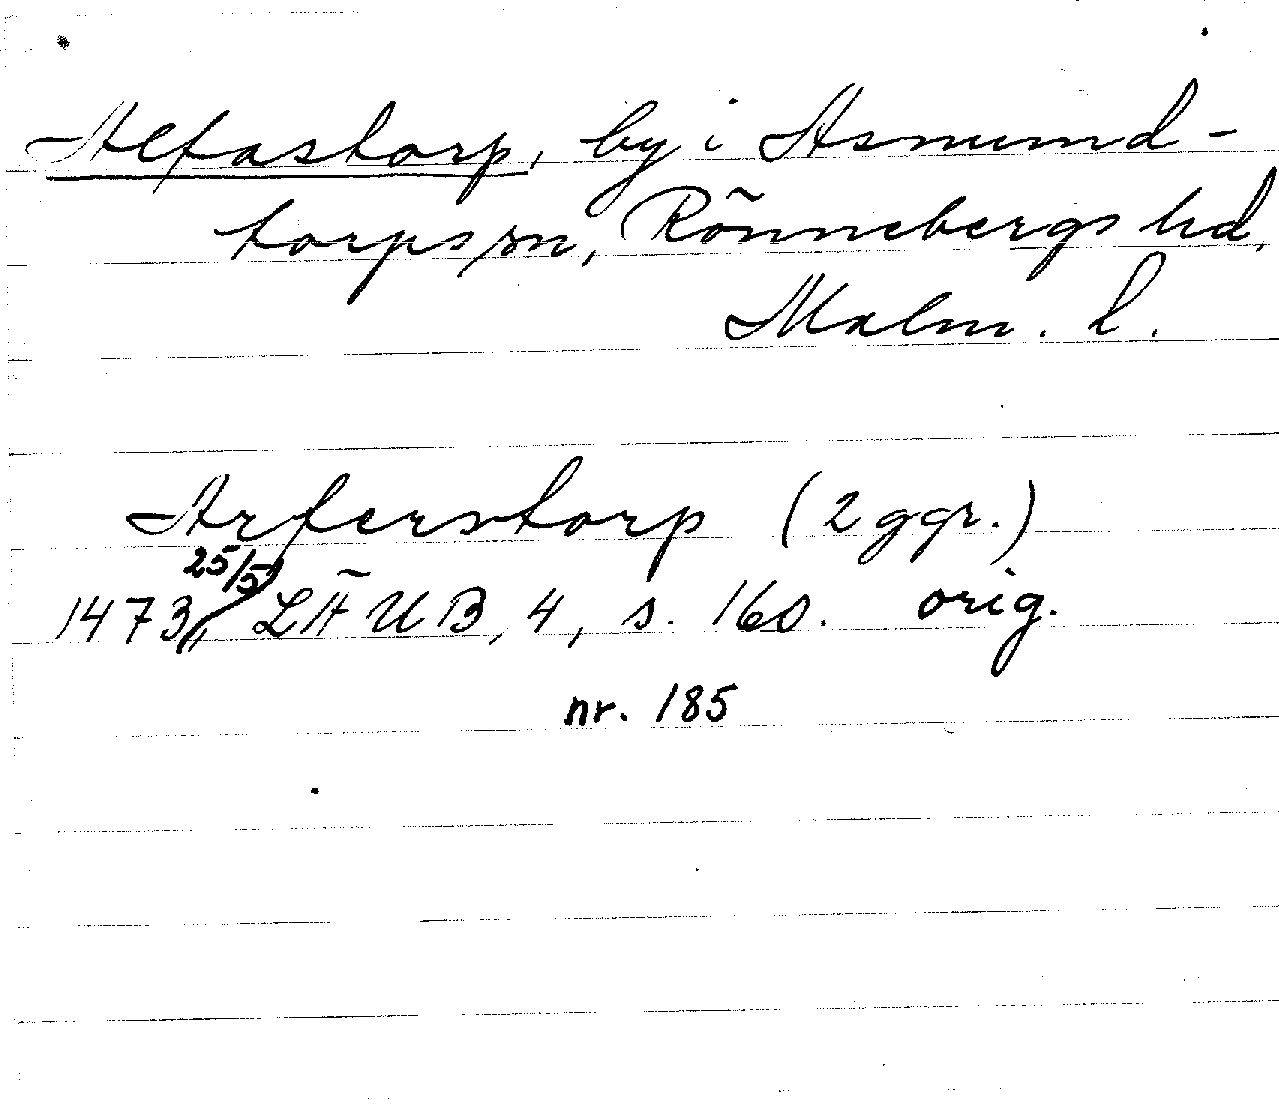 Alfastorp, by i Asmund-
torps sn, Rönnebergs hd,
Malm. l.
Arferstorp (2 ggr.)
1473 25/5, LÄUB, 4, s. 160. orig.
nr. 185